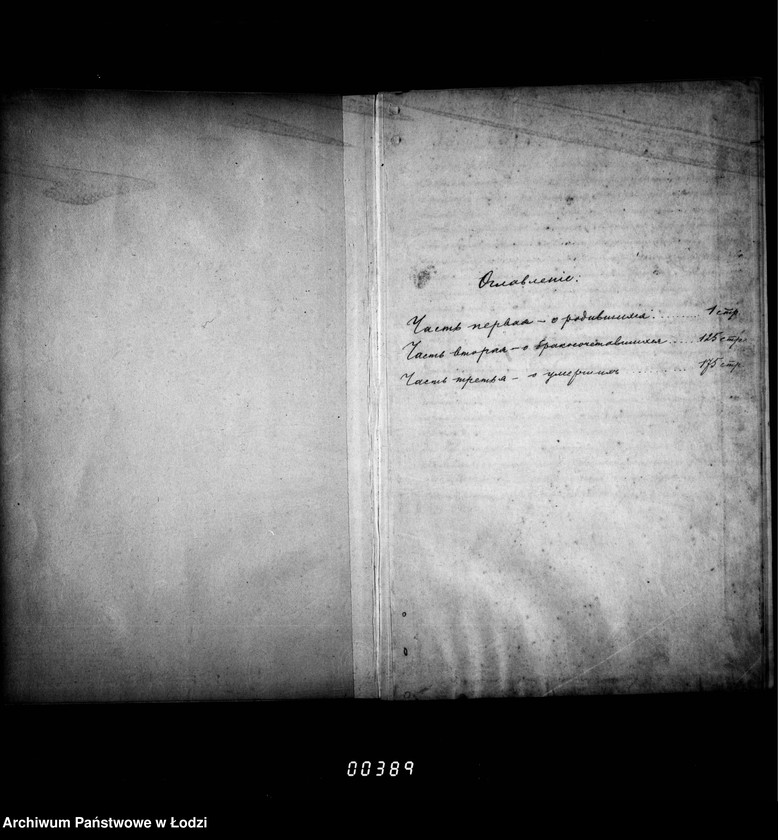 Оглавленіе.
Часть первая – о родившихся. ........ 1 стр.
Часть вторая – о бракосочетавшихся .... 125 стр.
Часть третья – о умершихъ ........ 175 стр.
00389
Archiwum Państwowe w Łodzi